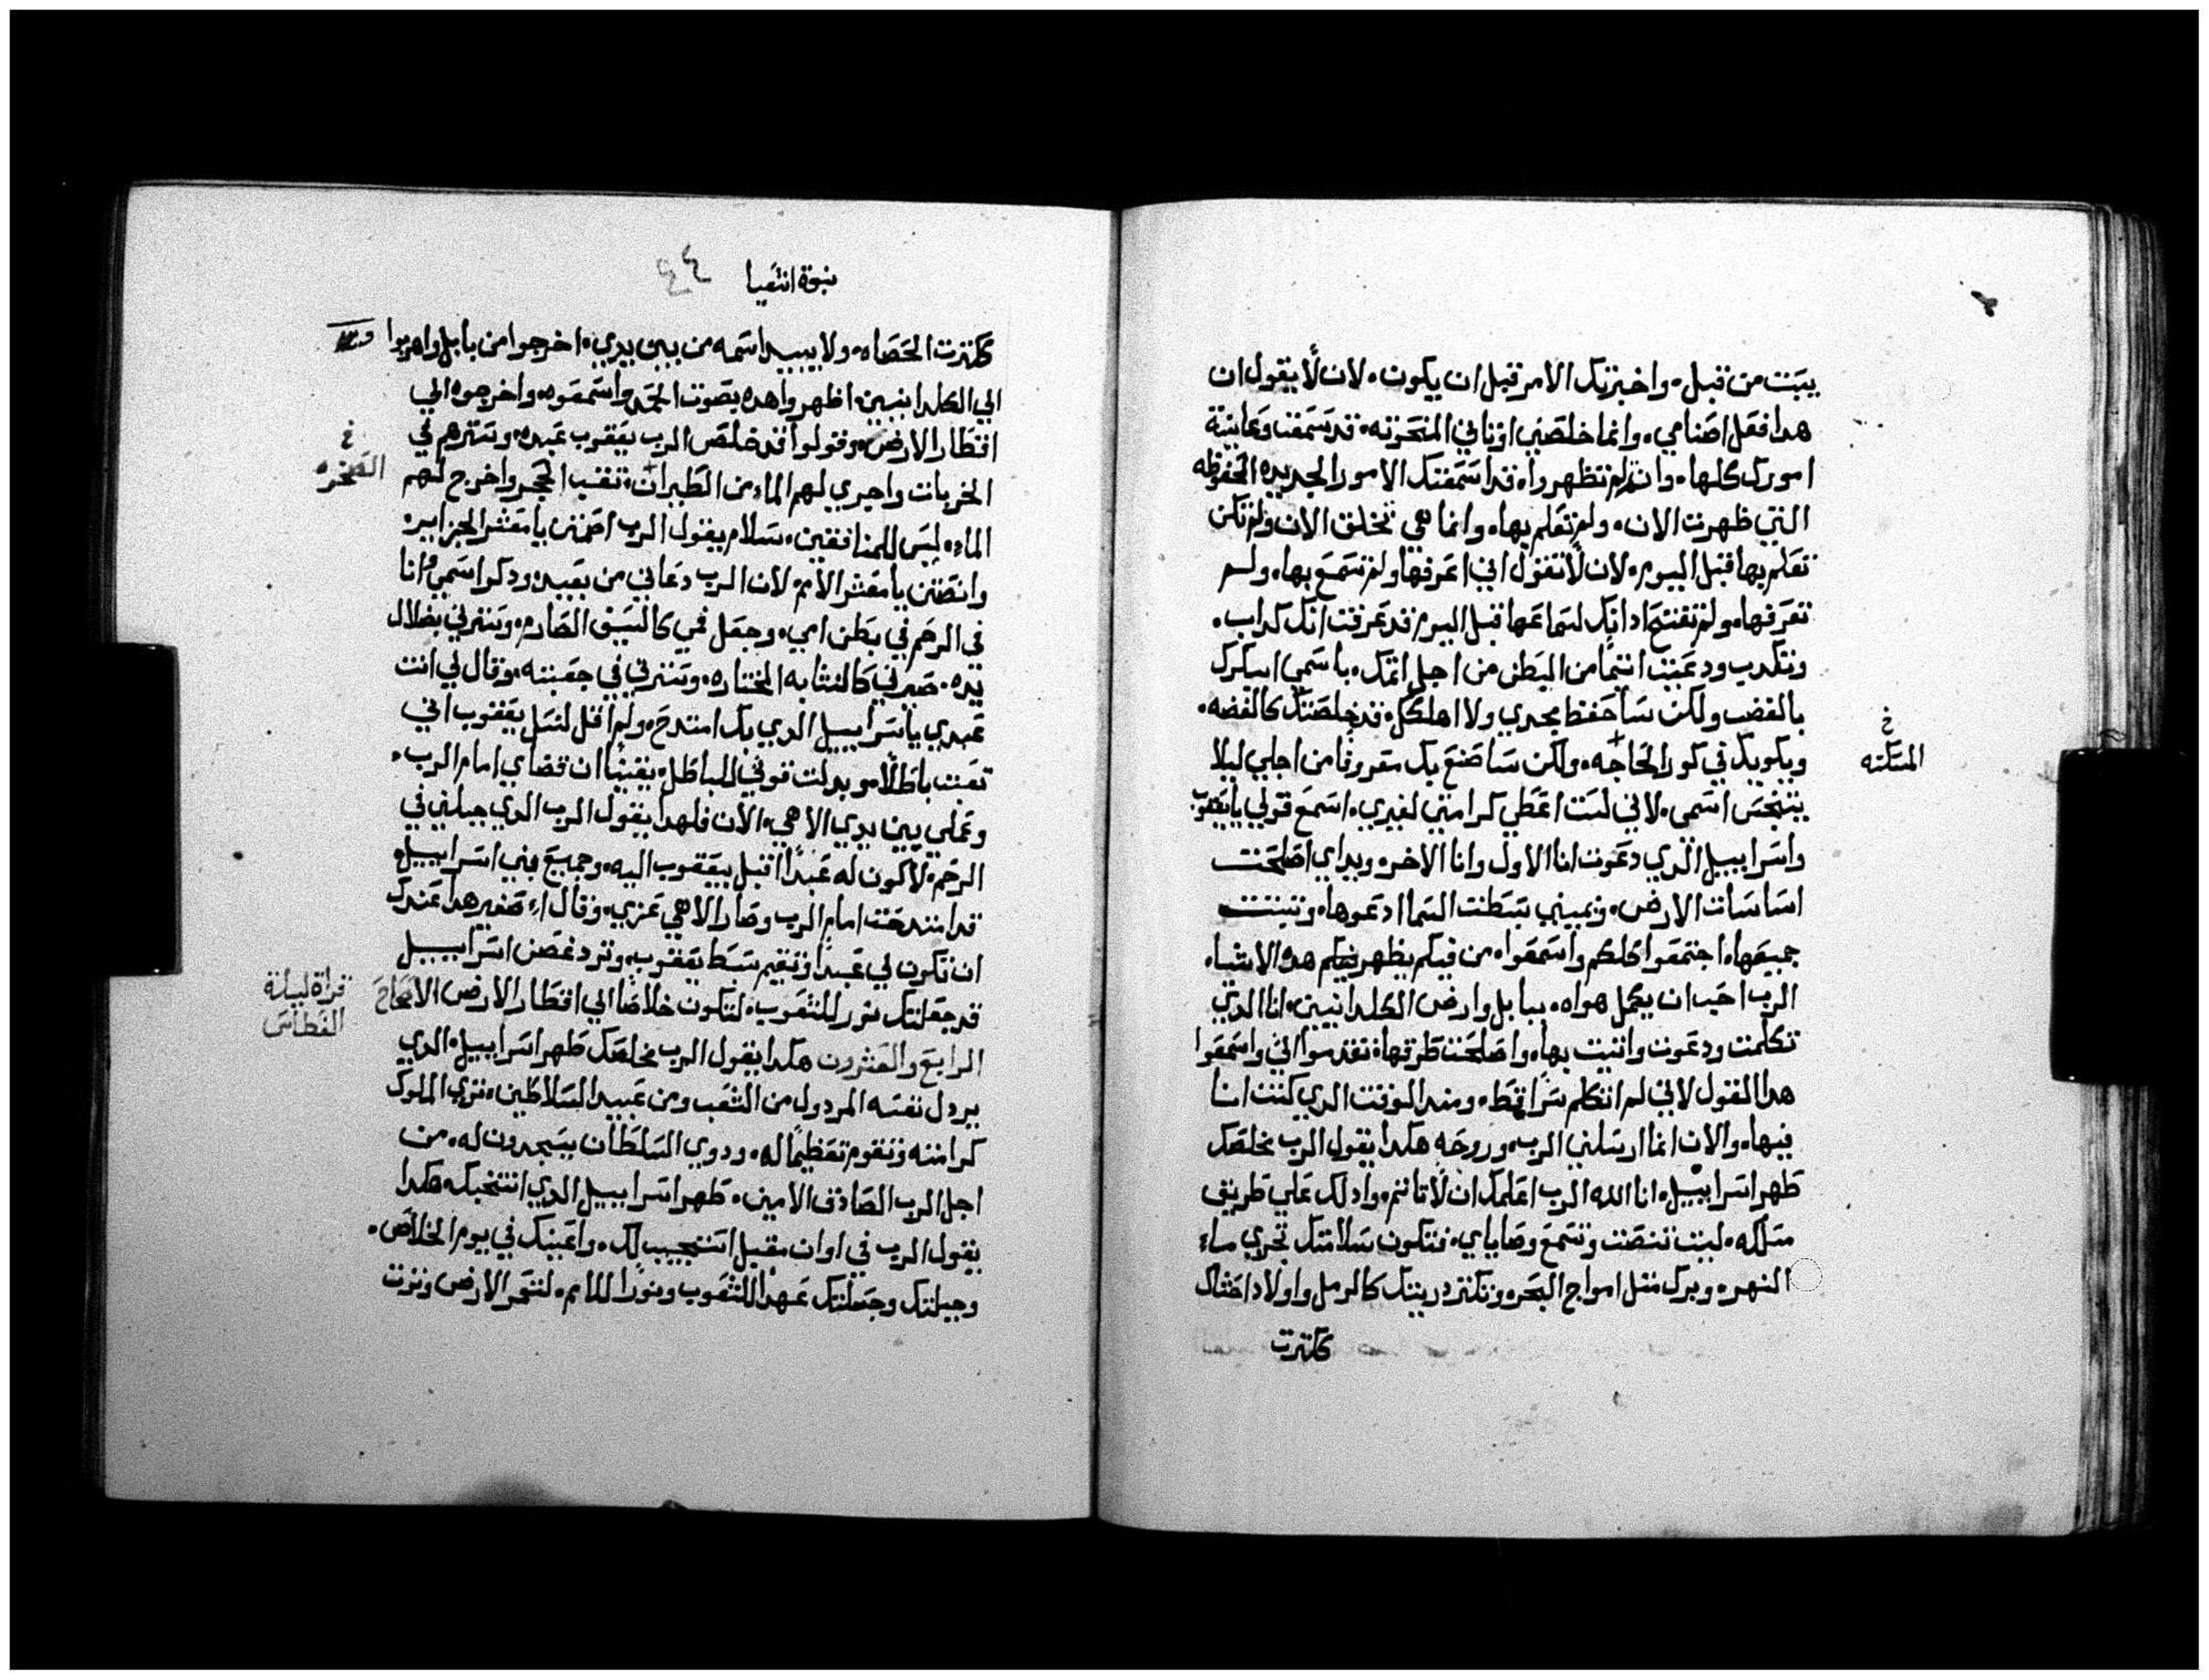 يبنت من قبل، واخبرتك الامر قبل ان يكون، لان لا يقول ان
هدا فعل اصنامي، وانما خلصني اوتاني المنحوته، قد سمعت وعاينة
امورك كلها، وان لم تظهروا، قد اسمعتك الامور الجديده المحفوظه
التي ظهرت الان، ولم تعلم بها، وانما هي تخلق الان ولم تكن
تعلم بها قبل اليوم، لان لا تقول اني اعرفها ولم تسمع بها، ولم
تعرفها، ولم تفتتح ادانك لسماعها قبل اليوم قد عرفت انك كداب،
وتكدب ودعيت اتيما من البطن من اجل اتمك، باسمي اسكرك
بالغضب ولكن ساحفظ مجدي ولا اهلكك، قد خلصتك كالفضه،
ويكويك في كور الحاجه، ولكن ساصنع بك معروفا من اجلي ليلا
خ
المسكنه
يتنجس اسمي، لاني لست اعطي كرامتي لغيري، اسمع قولي يا يعقوب
واسراييل الدي دعوت انا الاول وانا الاخر، ويداي اصلحت
اساسات الارض، ويميني بسطت السما ادعوها، وتبتت
جميعها، اجتمعوا كلكم واسمعوا، من فيكم يظهر فيكم هده الاشيا،
الرب احب ان يكمل هواه، ببابل وارض الكلدانيين، انا الدي
تكلمت ودعوت واتيت بها، واصلحت طرقها، تقدموا الي واسمعوا
هدا القول لاني لم اتكلم سرا قط، ومند الوقت الدي كنت انا
فيها، والان انما ارسلني الرب، وروحه هكدا يقول الرب مخلصك
طهر اسراييل، انا الله الرب اعلمك ان لا تاتم، وادلك علي طريق
مسلكه، ليت تنصت وتسمع وصاياي، فتكون سلامتك تجري ماء
النهر، وبرك متل امواج البحر، وتكتر دريتك كالرمل واولاد احشاك
كترت
نبوة اشعيا ٤٤
كترت الحصاه، ولا يبيد اسمه من بين يدي، اخرجوا من بابل واهربوا
الي الكلدانيين اظهروا هده بصوت المجد واسمعوه، واخرجوه الي
اقطار الارض، وقولوا قد خلص الرب يعقوب عبده، وسترهم في
الخربات واجري لهم الماء من الطيران، تقب الحجر واخرج لهم
خ
الصخره
الماء، ليس للمنافقين، سلام يقول الرب اصمتن يا معشر الجزاير،
وانصتن يا معشر الامم، لان الرب دعاني من بعيد، ودكر اسمي وانا
في الرحم في بطن امي، وجعل فمي كالسيف الصارم، وسترني بضلال
يده، صيرني كالنشابه المختاره، وسترني في جعبته، وقال لي انت
عبدي يا سراييل الدي بك امتدح، ولم اقل لنسل يعقوب اني
تعبت باطلا، وبدلت قوتي للباطل، يقينا ان قضاي امام الرب،
وعملي بين يدي الاهي، الان فلهدا يقول الرب الدي جبلني في
الرحم، لاكون له عبدا اقبل بيعقوب اليه، وجميع بني اسراييل،
قد امتدحت امام الرب وصار الاهي عزي، وقال اء صغير هدا عندك
ان تكون لي عبدا وتقيم سبط يعقوب، وترد غصن اسراييل
قد جعلتك نور للشعوب، لتكون خلاصا الي اقطار الارض الاصحاح
قراة ليلة
الغطاس
الرابع والعشرون هكدا يقول الرب مخلصك طهر اسراييل، الدي
يردل نفسه المردول من الشعب ومن عبيد السلاطين، تري الملوك
كرامته وتقوم تعظيما له، ودوي السلطان يسجدون له، من
اجل الرب الصادق الامين، طهر اسراييل الدي انتخبك هكدا
يقول الرب في اوان مقبل استجيب لك، واعينك في يوم الخلاص،
وجبلتك وجعلتك عهدا للشعوب ونورا للامم، لتعمر الارض وترت